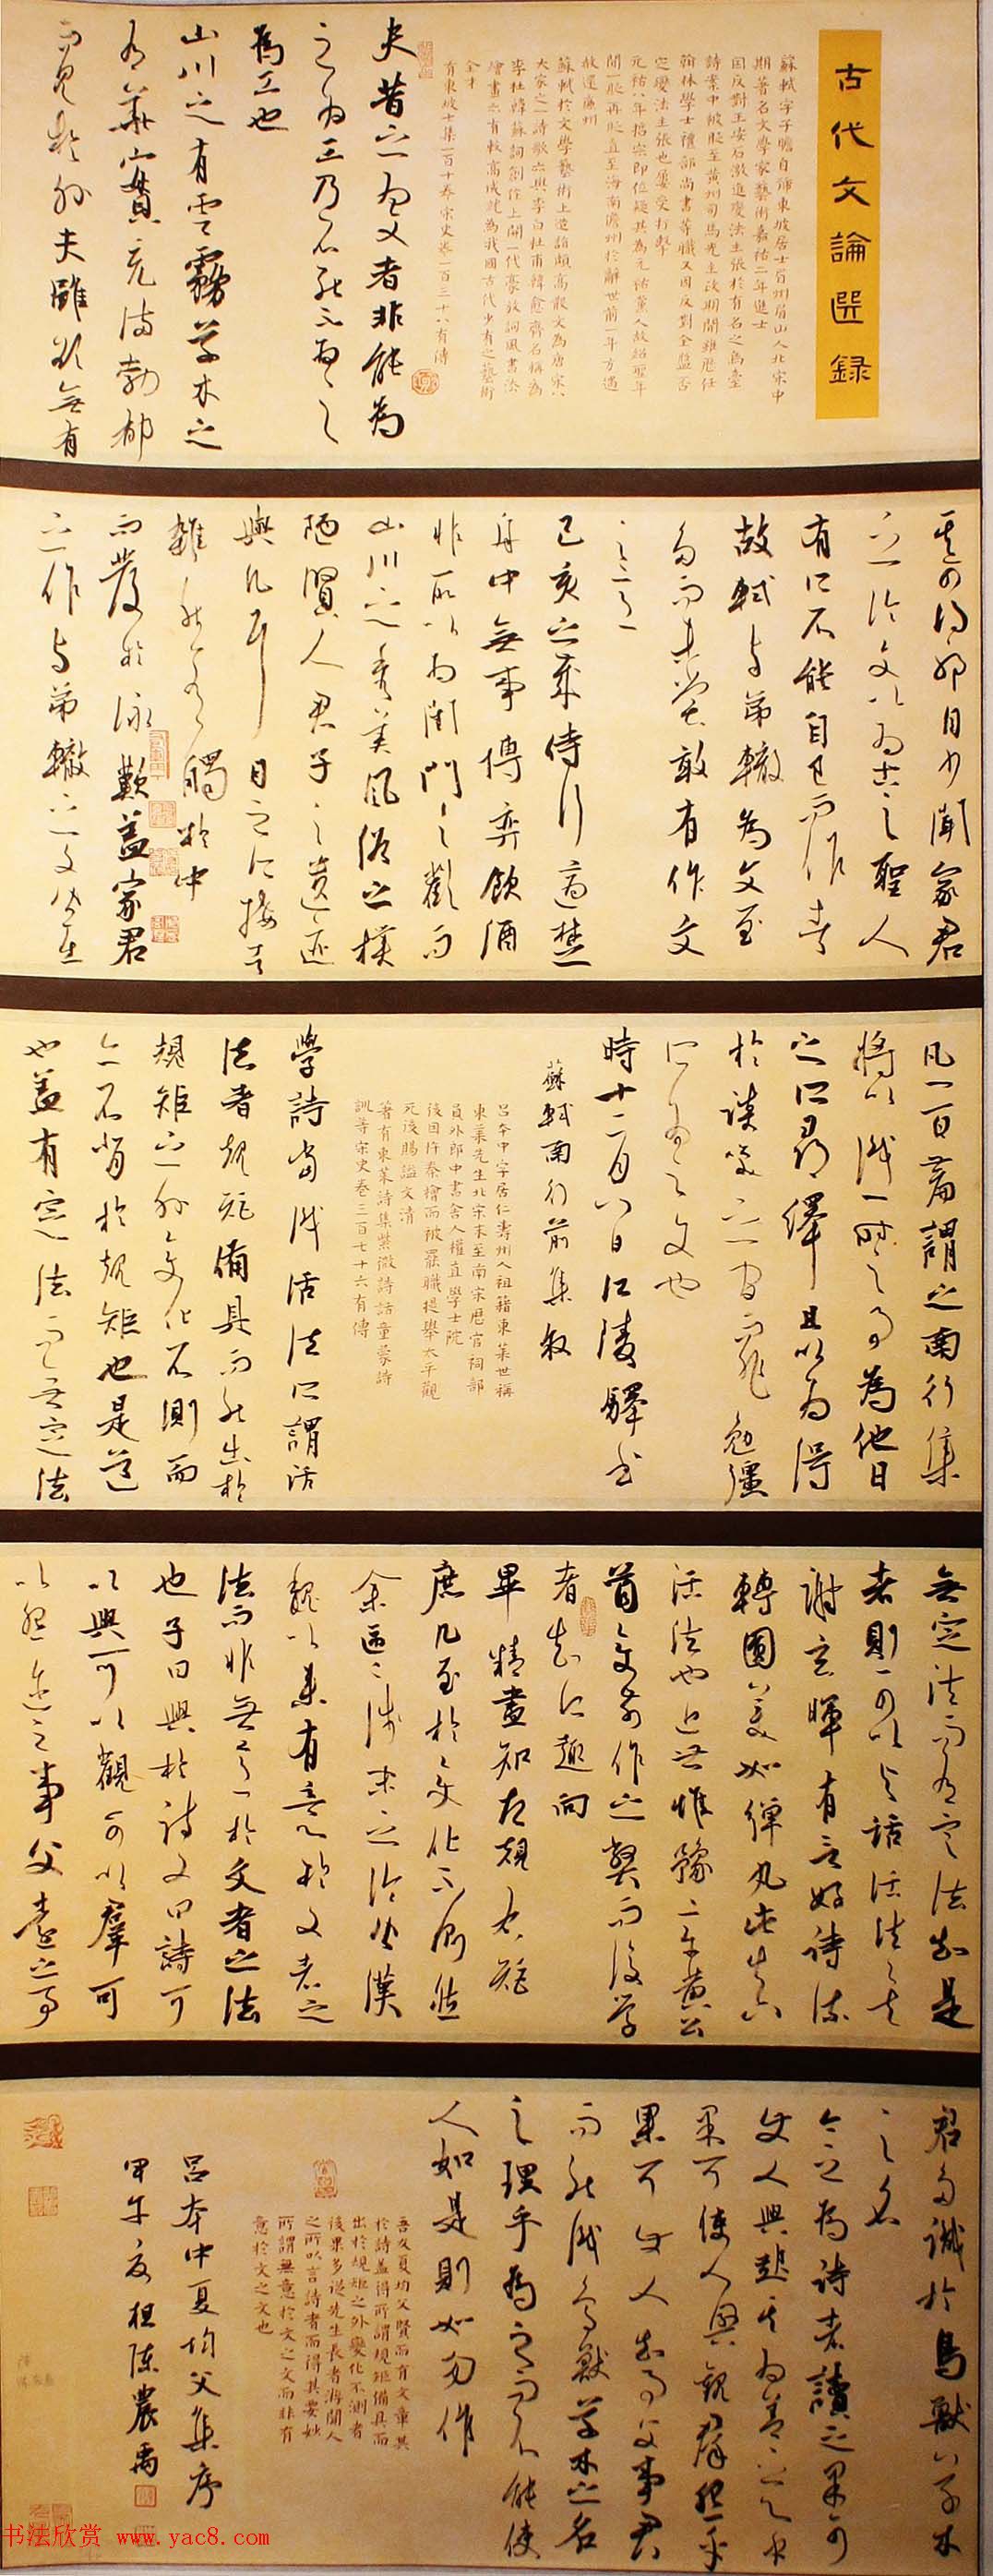 古代文論選録
蘇軾字子瞻自號東坡居士眉州眉山人北宋中
期著名文學家藝術家嘉祐二年進士
因反對王安石激進變法主張於有名之烏臺
詩案中被貶至黃州司馬光主政期間雖歷任
翰林學士禮部尚書等職又因反對全盤否
定變法主張也屢受打擊
元祐八年哲宗即位疑其為元祐黨人故紹聖年
間一貶再貶直至海南儋州於辭世前一年方遇
赦還廉州
蘇軾於文學藝術上造詣頗高散文為唐宋八
大家之一詩歌亦與李白杜甫韓愈齊名稱為
李杜韓蘇詞創作上開一代豪放詞風書法
繪畫亦有較高成就為我國古代少有之藝術
全才
有東坡七集一百十卷宋史卷一百三十八有傳
夫昔之為文者非能為
之為工乃不能不為之
為工也
山川之有雲霧草木之
有華實充滿勃鬱
而見於外夫雖欲無有
其可得耶自少聞家君
之論文以為古之聖人
有所不能自已而作者
故軾與弟轍為文至
多而未嘗敢有作文
之意
己亥之歲侍行適楚
舟中無事博弈飲酒
非所以為閨門之歡而
山川之秀美風俗之樸
陋賢人君子之遺迹
與凡耳目之所接者
雜然有觸於中
而發於詠歎蓋家君
之作與弟轍之文皆在
凡一百篇謂之南行集
將以識一時之事為他日
之所尋繹且以為得
於談笑之間而非勉彊
所為之文也
時十二月八日江陵驛書
蘇軾南行前集敘
呂本中字居仁壽州人祖籍東萊世稱
東萊先生北宋末至南宋歷官祠部
員外郎中書舍人權直學士院
後因忤秦檜而被罷職提舉太平觀
死後賜諡文清
著有東萊詩集紫微詩話童蒙詩
訓等宋史卷三百七十六有傳
學詩當識活法所謂活
法者規矩備具而能出於
規矩之外變化不測而
亦不背於規矩也是道
也蓋有定法而無定法
無定法而有定法知是
者則可以與語活法矣
謝玄暉有言好詩流
轉圓美如彈丸此真
活法也近世惟豫章黃公
首變前作之弊而後學
者知所趣向
畢精盡知左規右矩
庶幾至於變化不測然
余區區淺末之論皆漢
魏以來有意於文者之
法而非無意於文者之法
也子曰興於詩又曰詩可
以興可以觀可以羣可
以怨邇之事父遠之事
君多識於鳥獸草木
之名
今之為詩者讀之果可
使人興起其為善之心乎
果可使人興觀羣怨乎
果可使人知事父事君
而能識鳥獸草木之名
之理乎為之而不能使
人如是則如勿作
吾友夏均父賢而有文章其
於詩蓋得所謂規矩備具而
出於規矩之外變化不測者
後果多從先生長者游聞人
之所以言詩者而得其要妙
所謂無意於文之文而非有
意於文之文也
呂本中夏均父集序
甲午夏桓陳農禹
书法欣赏 www.yac8.com